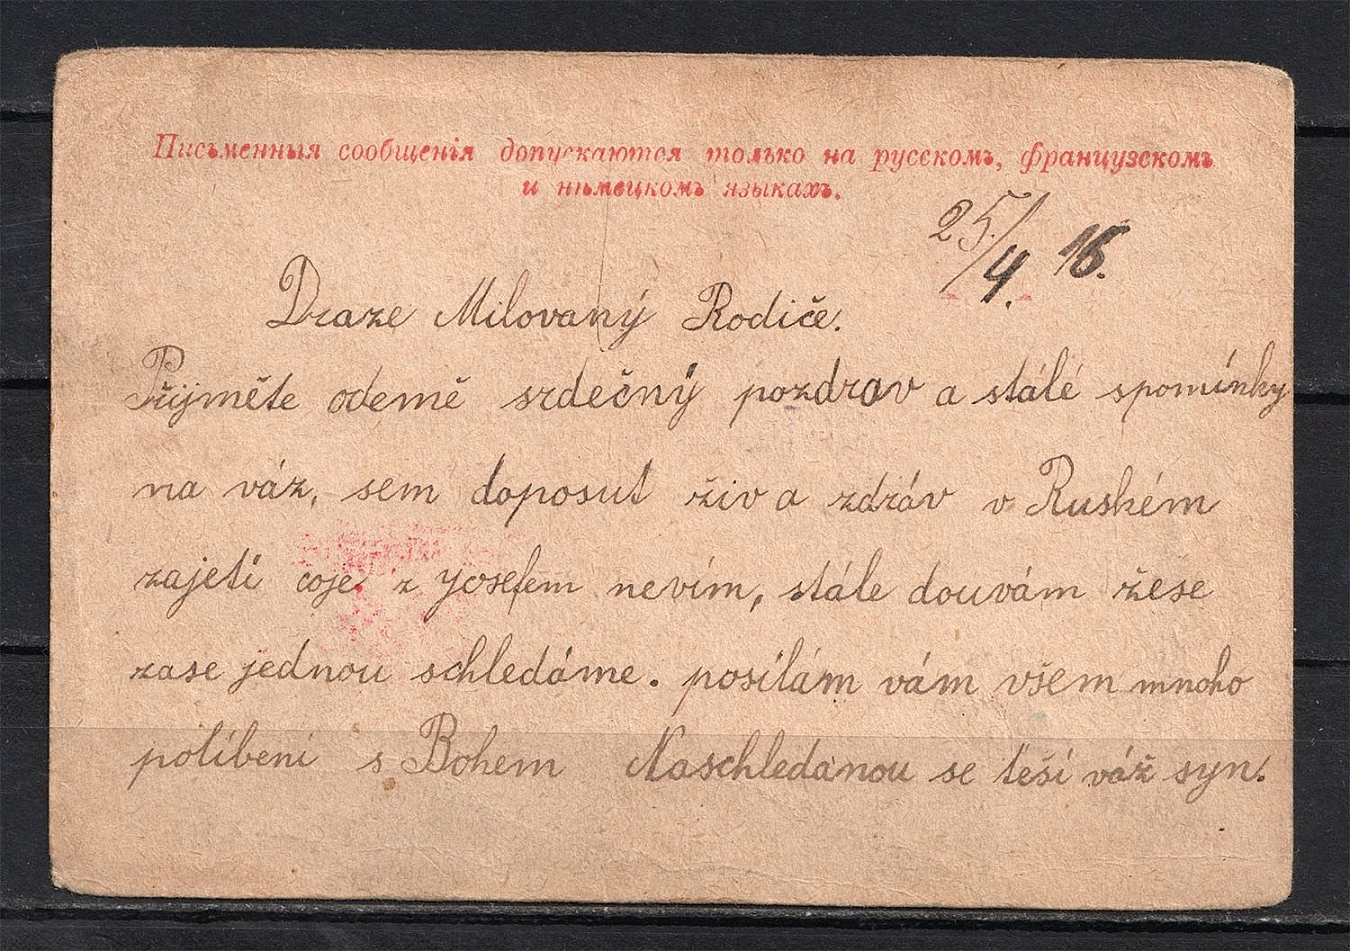 Письменныя сообщенія допускаются только на русскомъ, французскомъ
и нѣмецкомъ языкахъ.
25/4 16.
Draze Milovaný Rodiče.
Přijměte odemě srdečný pozdrav a stálé spomínky
na váz, sem doposut živ a zdráv v Ruském
zajetí coje z Josefem nevím, stále douvám žese
zase jednou schledáme. posílám vám všem mnoho
políbení s Bohem Naschledanou se těší váž syn.